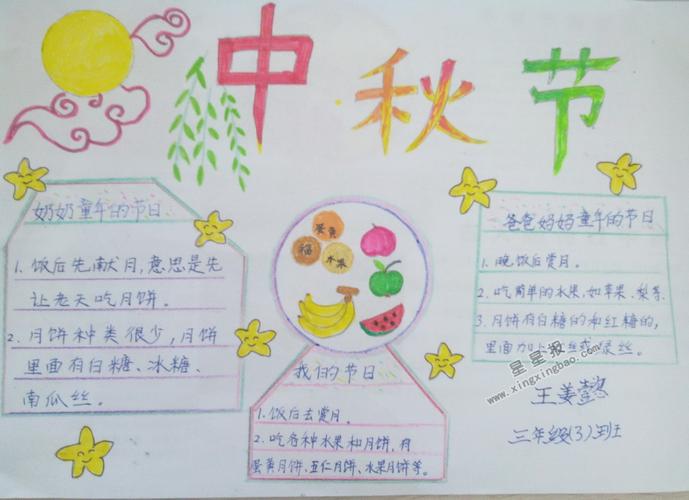 中秋节
奶奶童年的节日
1. 饭后先献月,意思是先
让老天吃月饼。
2. 月饼种类很少,月饼
里面有白糖、冰糖、
南瓜丝。
蛋黄
福
水果
我们的节日
1. 饭后去赏月。
2. 吃各种水果和月饼,有
蛋黄月饼、五仁月饼、水果月饼等。
爸爸妈妈童年的节日
1. 晚饭后赏月。
2. 吃简单的水果,如苹果、梨等.
3. 月饼有白糖的和红糖的,
里面加 丝或绿丝。
星星报
www.xingxingbao.com
王姜懿
三年级(3)班